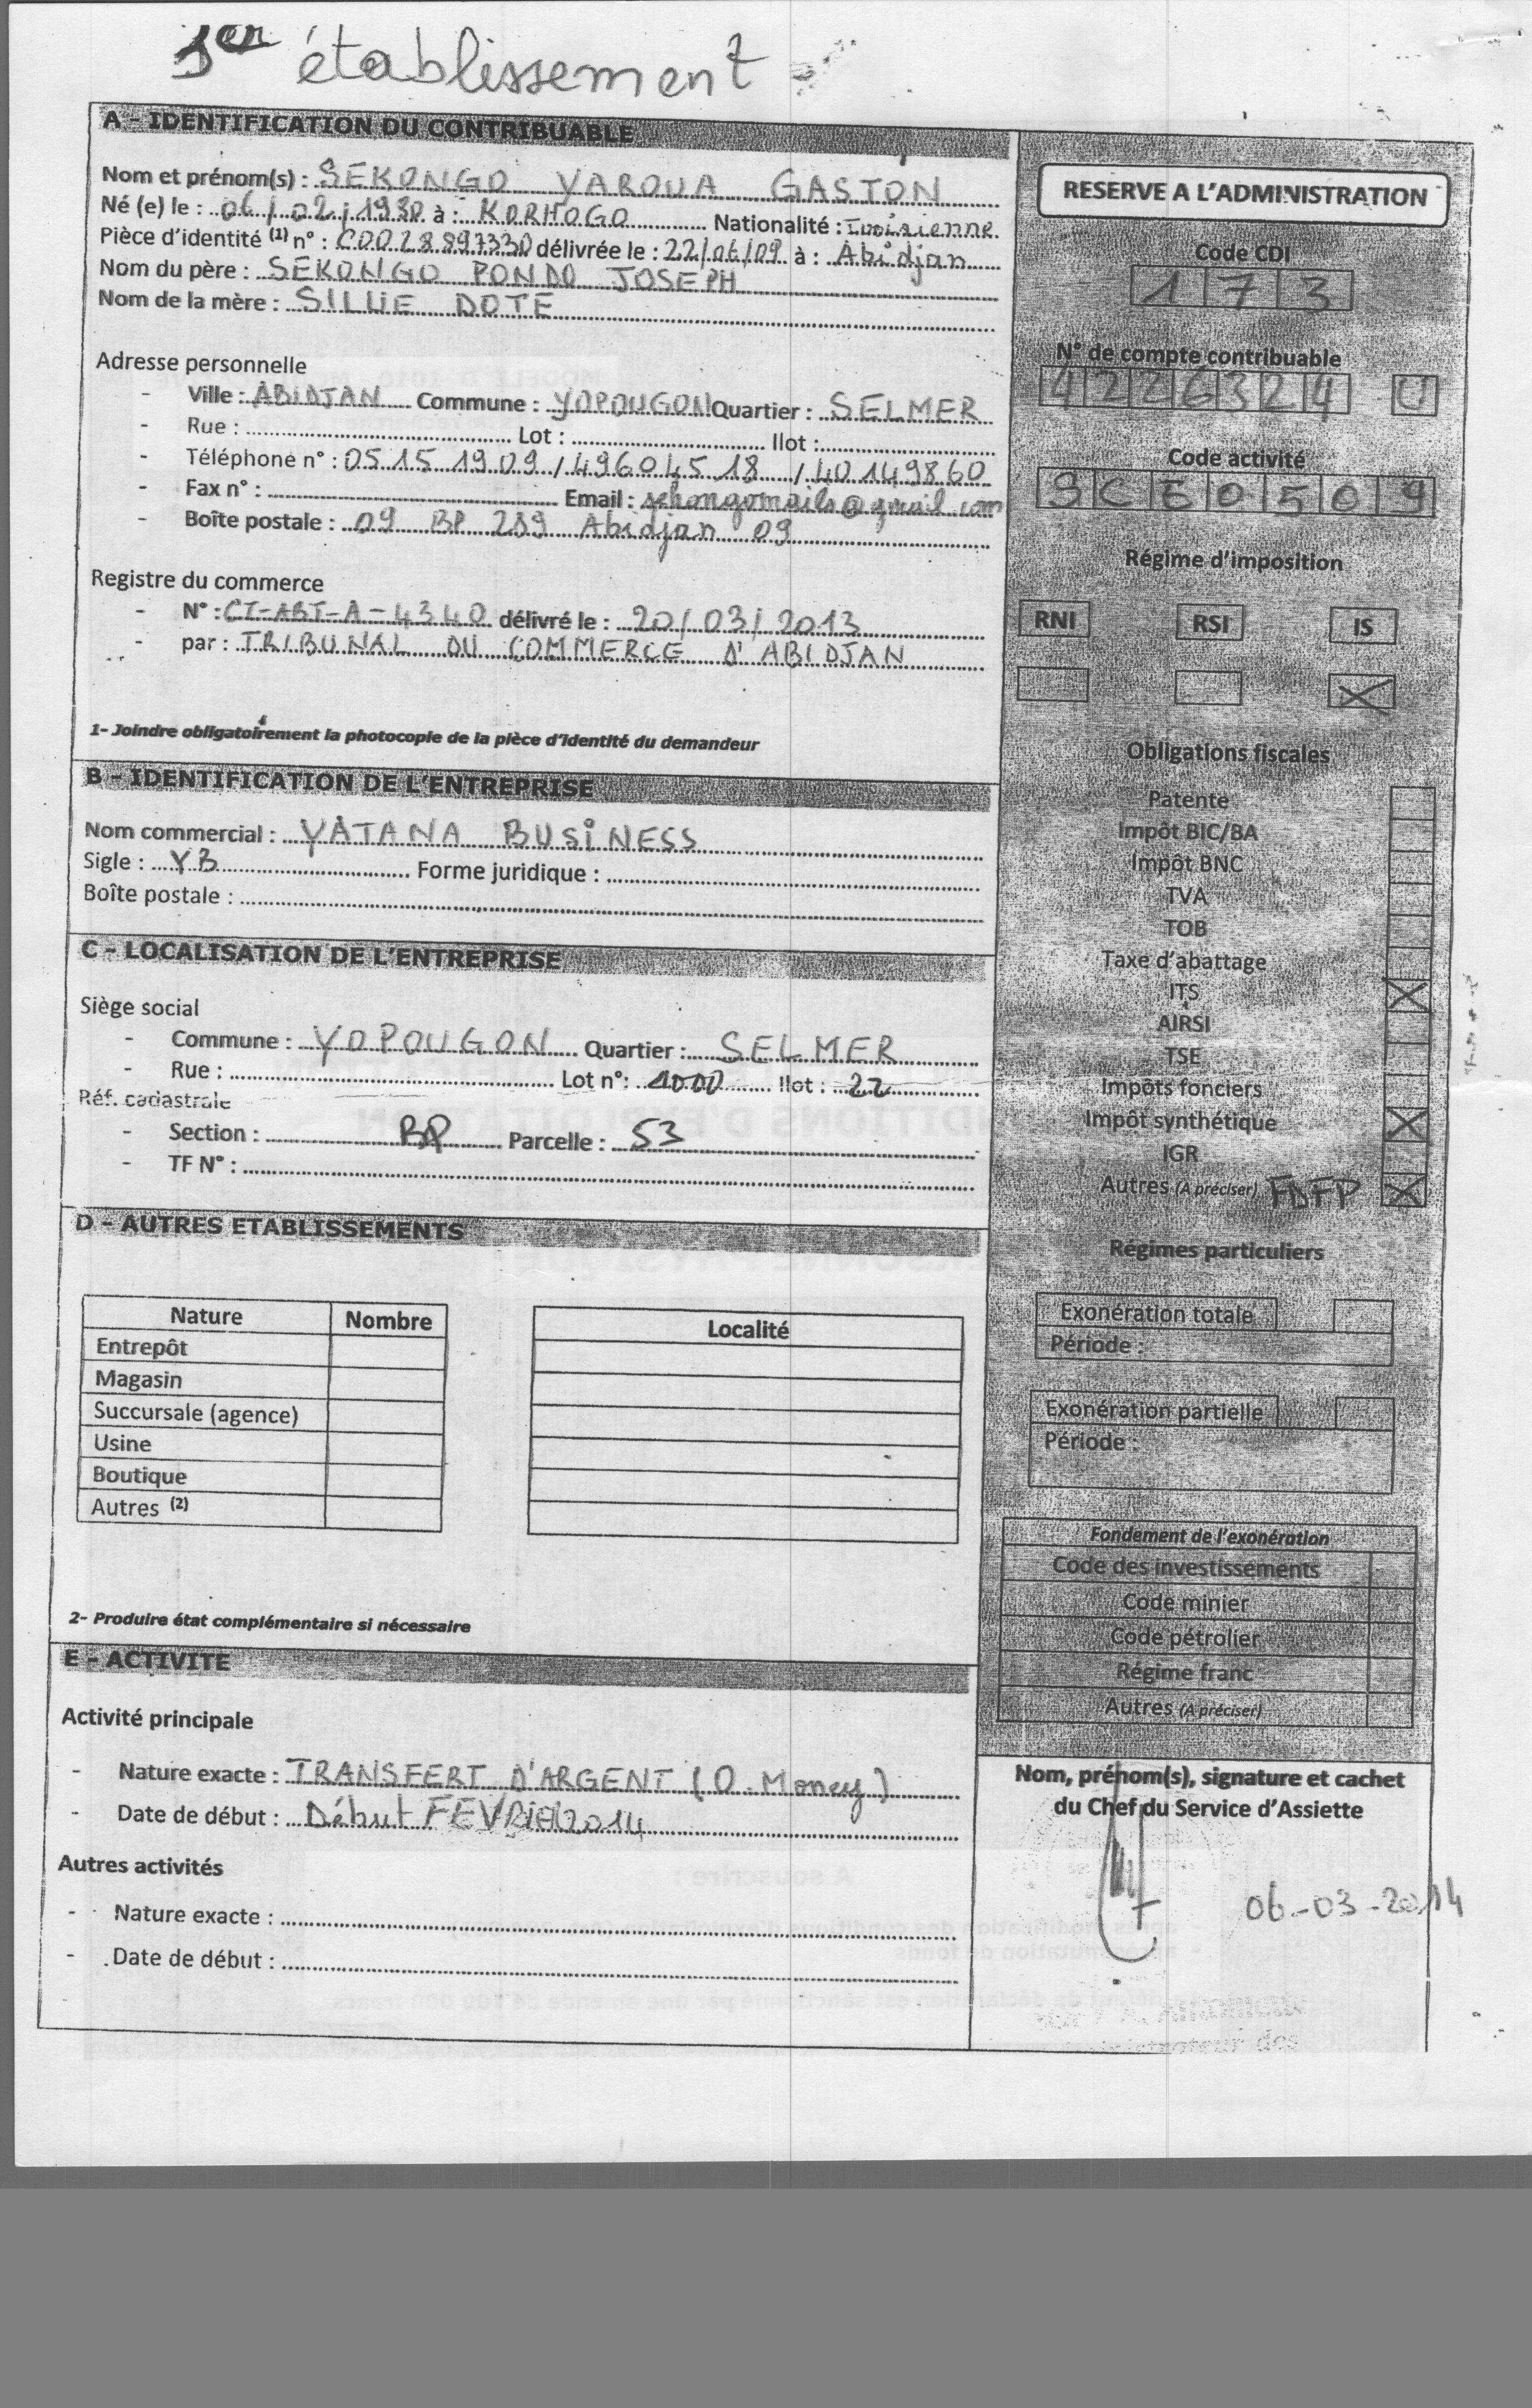 1er établissement
A - IDENTIFICATION DU CONTRIBUABLE
Nom et prénom(s) : SEKONGO YAROUA GASTON
Né (e) le : 06/02/1980 à : KORHOGO Nationalité : Ivoirienne
Pièce d'identité (1) n° : C0028897330 délivrée le : 22/06/09 à : Abidjan
Nom du père : SEKONGO PONDO JOSEPH
Nom de la mère : SILUE DOTE
Adresse personnelle
- Ville : ABIDJAN Commune : YOPOUGON Quartier : SELMER
- Rue : Lot : Ilot :
- Téléphone n° : 05 15 19 09 / 49604518 / 40149860
- Fax n° : Email : sekongomails@gmail.com
- Boîte postale : 09 BP 289 Abidjan 09
Registre du commerce
- N° : CI-ABJ-A-4340 délivré le : 20/03/2013
- par : TRIBUNAL DU COMMERCE D'ABIDJAN
1- Joindre obligatoirement la photocopie de la pièce d'identité du demandeur
B - IDENTIFICATION DE L'ENTREPRISE
Nom commercial : YATANA BUSINESS
Sigle : YB Forme juridique :
Boîte postale :
C - LOCALISATION DE L'ENTREPRISE
Siège social
- Commune : YOPOUGON Quartier : SELMER
- Rue : Lot n° : 1000 Ilot : 22
Réf. cadastrale
- Section : BP Parcelle : 53
- TF N° :
D - AUTRES ETABLISSEMENTS
Nature Nombre Localité
Entrepôt
Magasin
Succursale (agence)
Usine
Boutique
Autres (2)
2- Produire état complémentaire si nécessaire
E - ACTIVITE
Activité principale
- Nature exacte : TRANSFERT D'ARGENT (O. Money)
- Date de début : Début FEVRIER 2014
Autres activités
- Nature exacte :
- Date de début :
RESERVE A L'ADMINISTRATION
Code CDI
1 7 3
N° de compte contribuable
4 2 2 6 3 2 4 U
Code activité
S C 6 0 5 0 9
Régime d'imposition
RNI RSI IS
X
Obligations fiscales
Patente
Impôt BIC/BA
Impôt BNC
TVA
TOB
Taxe d'abattage
ITS X
AIRSI
TSE
Impôts fonciers
Impôt synthétique X
IGR
Autres (A préciser) FDFP X
Régimes particuliers
Exonération totale
Période :
Exonération partielle
Période :
Fondement de l'exonération
Code des investissements
Code minier
Code pétrolier
Régime franc
Autres (A préciser)
Nom, prénom(s), signature et cachet
du Chef du Service d'Assiette
06-03-2014